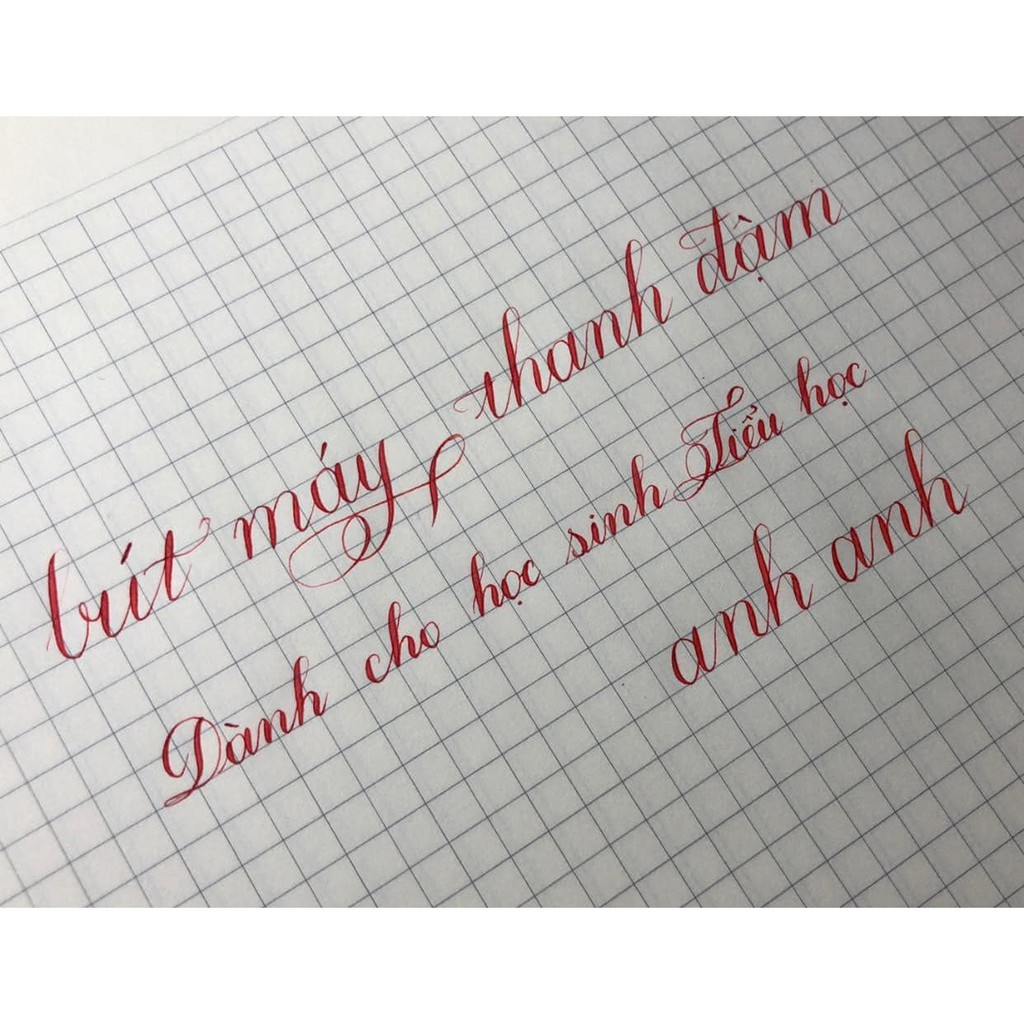 bút máy thanh đậm
Dành cho học sinh Tiểu học
anh anh